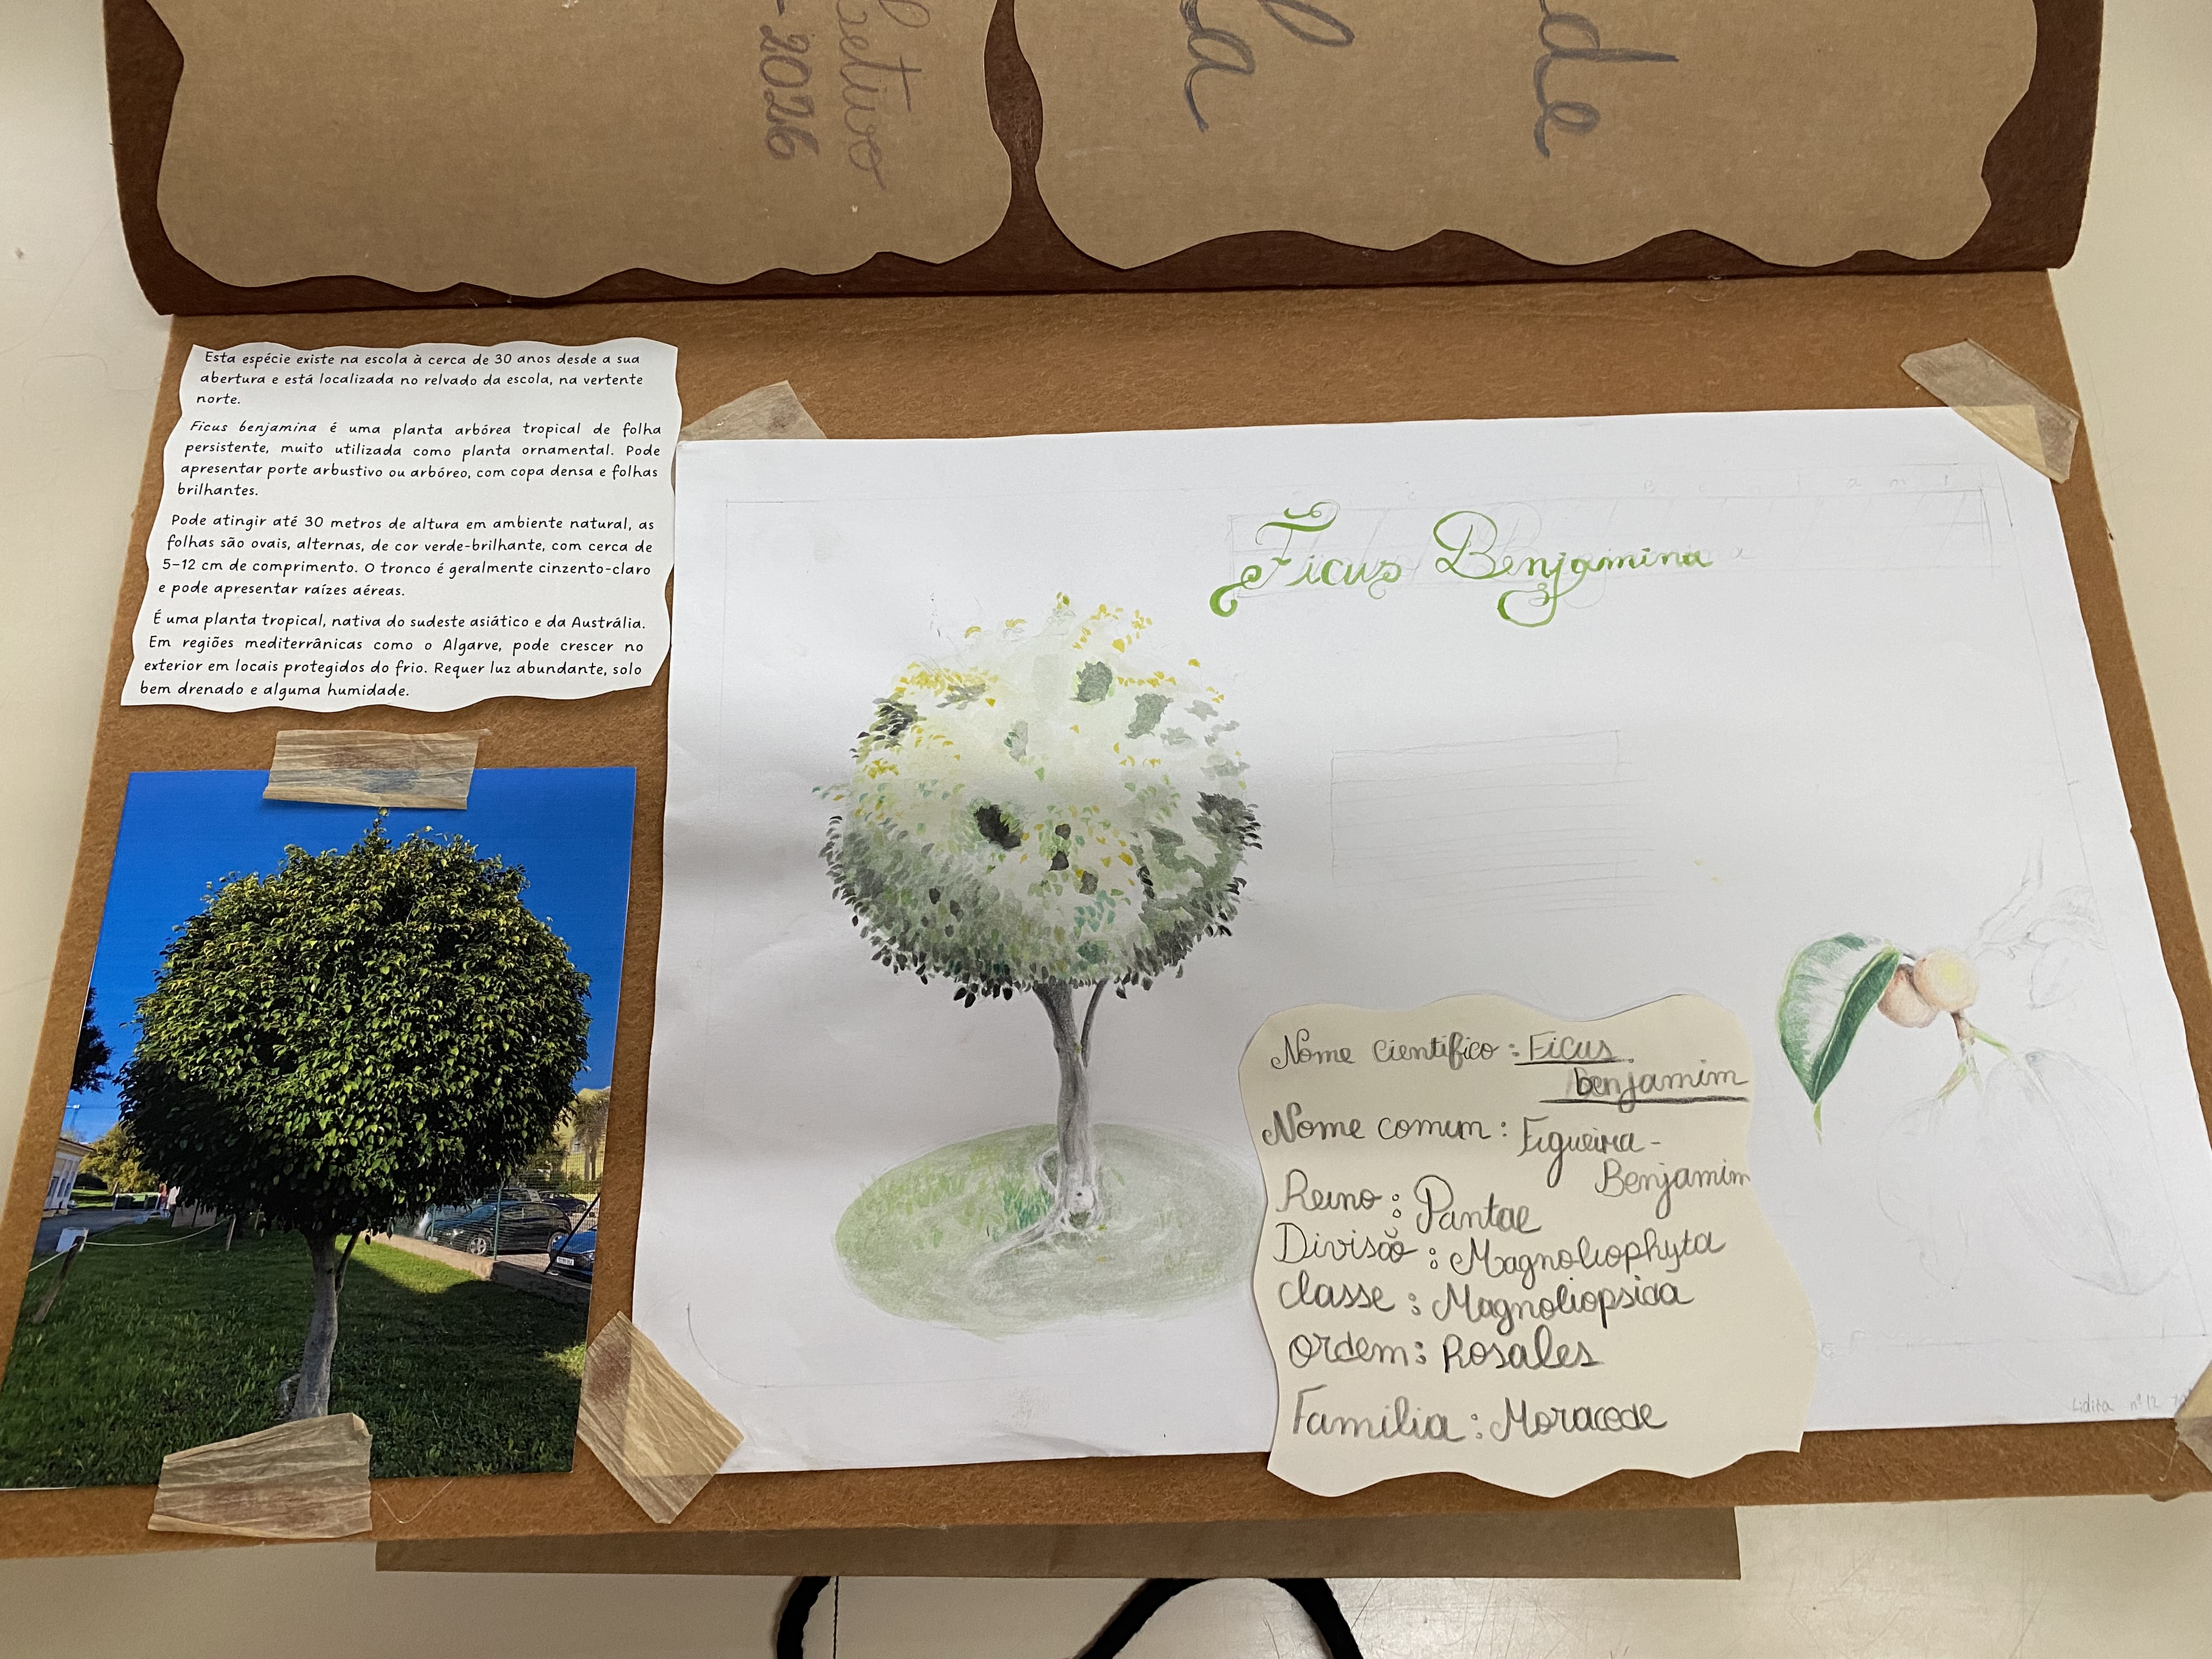 letivo
- 2026
de
la
Esta espécie existe na escola à cerca de 30 anos desde a sua
abertura e está localizada no relvado da escola, na vertente
norte.
Ficus benjamina é uma planta arbórea tropical de folha
persistente, muito utilizada como planta ornamental. Pode
apresentar porte arbustivo ou arbóreo, com copa densa e folhas
brilhantes.
Pode atingir até 30 metros de altura em ambiente natural, as
folhas são ovais, alternas, de cor verde-brilhante, com cerca de
5-12 cm de comprimento. O tronco é geralmente cinzento-claro
e pode apresentar raízes aéreas.
É uma planta tropical, nativa do sudeste asiático e da Austrália.
Em regiões mediterrânicas como o Algarve, pode crescer no
exterior em locais protegidos do frio. Requer luz abundante, solo
bem drenado e alguma humidade.
Ficus Benjamina
Nome científico: Ficus
benjamim
Nome comum: Figueira-
Benjamim
Reino: Pantae
Divisão: Magnoliophyta
classe: Magnoliopsida
ordem: Rosales
Familia: Moraceae
nº12